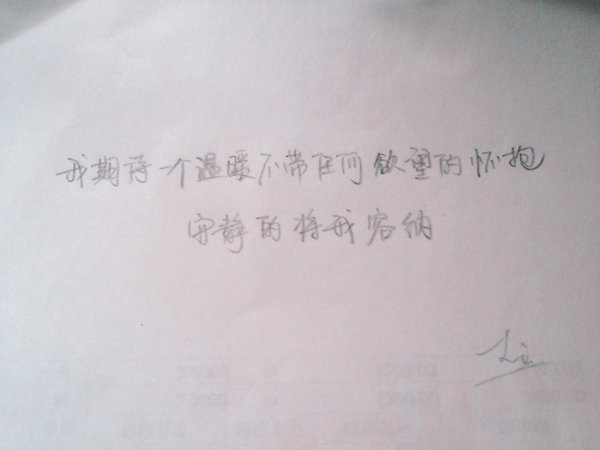 我期待一个温暖不带任何欲望的怀抱
安静的将我容纳